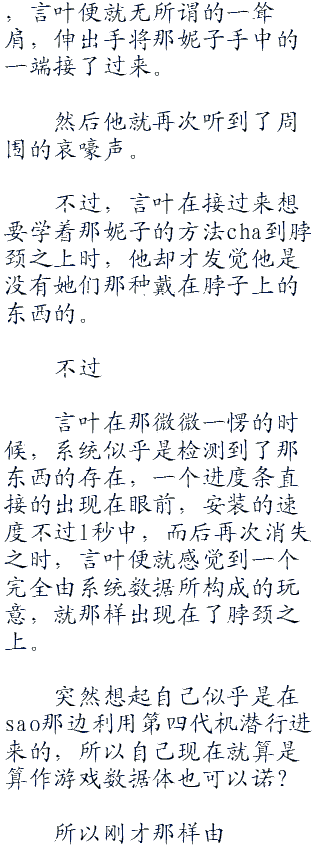 ，言叶便就无所谓的一耸
肩，伸出手将那妮子手中的
一端接了过来。
然后他就再次听到了周
围的哀嚎声。
不过，言叶在接过来想
要学着那妮子的方法cha到脖
颈之上时，他却才发觉他是
没有她们那种戴在脖子上的
东西的。
不过
言叶在那微微一愣的时
候，系统似乎是检测到了那
东西的存在，一个进度条直
接的出现在眼前，安装的速
度不过1秒中，而后再次消失
之时，言叶便就感觉到一个
完全由系统数据所构成的玩
意，就那样出现在了脖颈之
上。
突然想起自己似乎是在
sao那边利用第四代机潜行进
来的，所以自己现在就算是
算作游戏数据体也可以诺？
所以刚才那样由